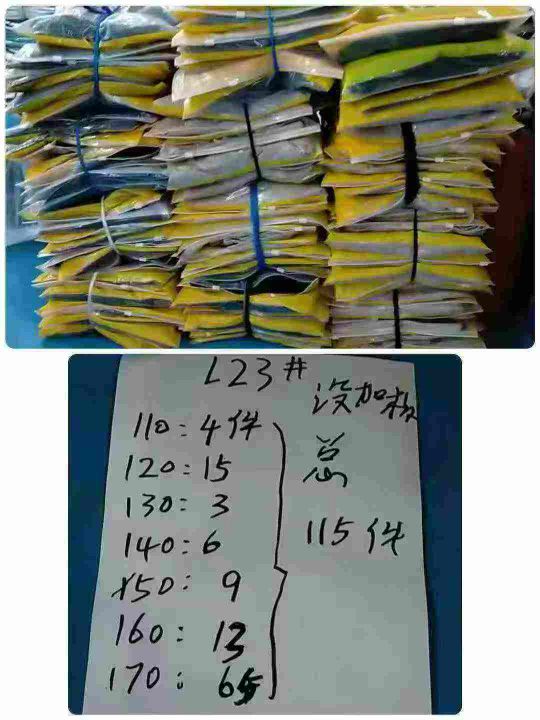 L23#
110:4件
120:15
130:3
140:6
150:9
160:13
170:65
没加
总
115件